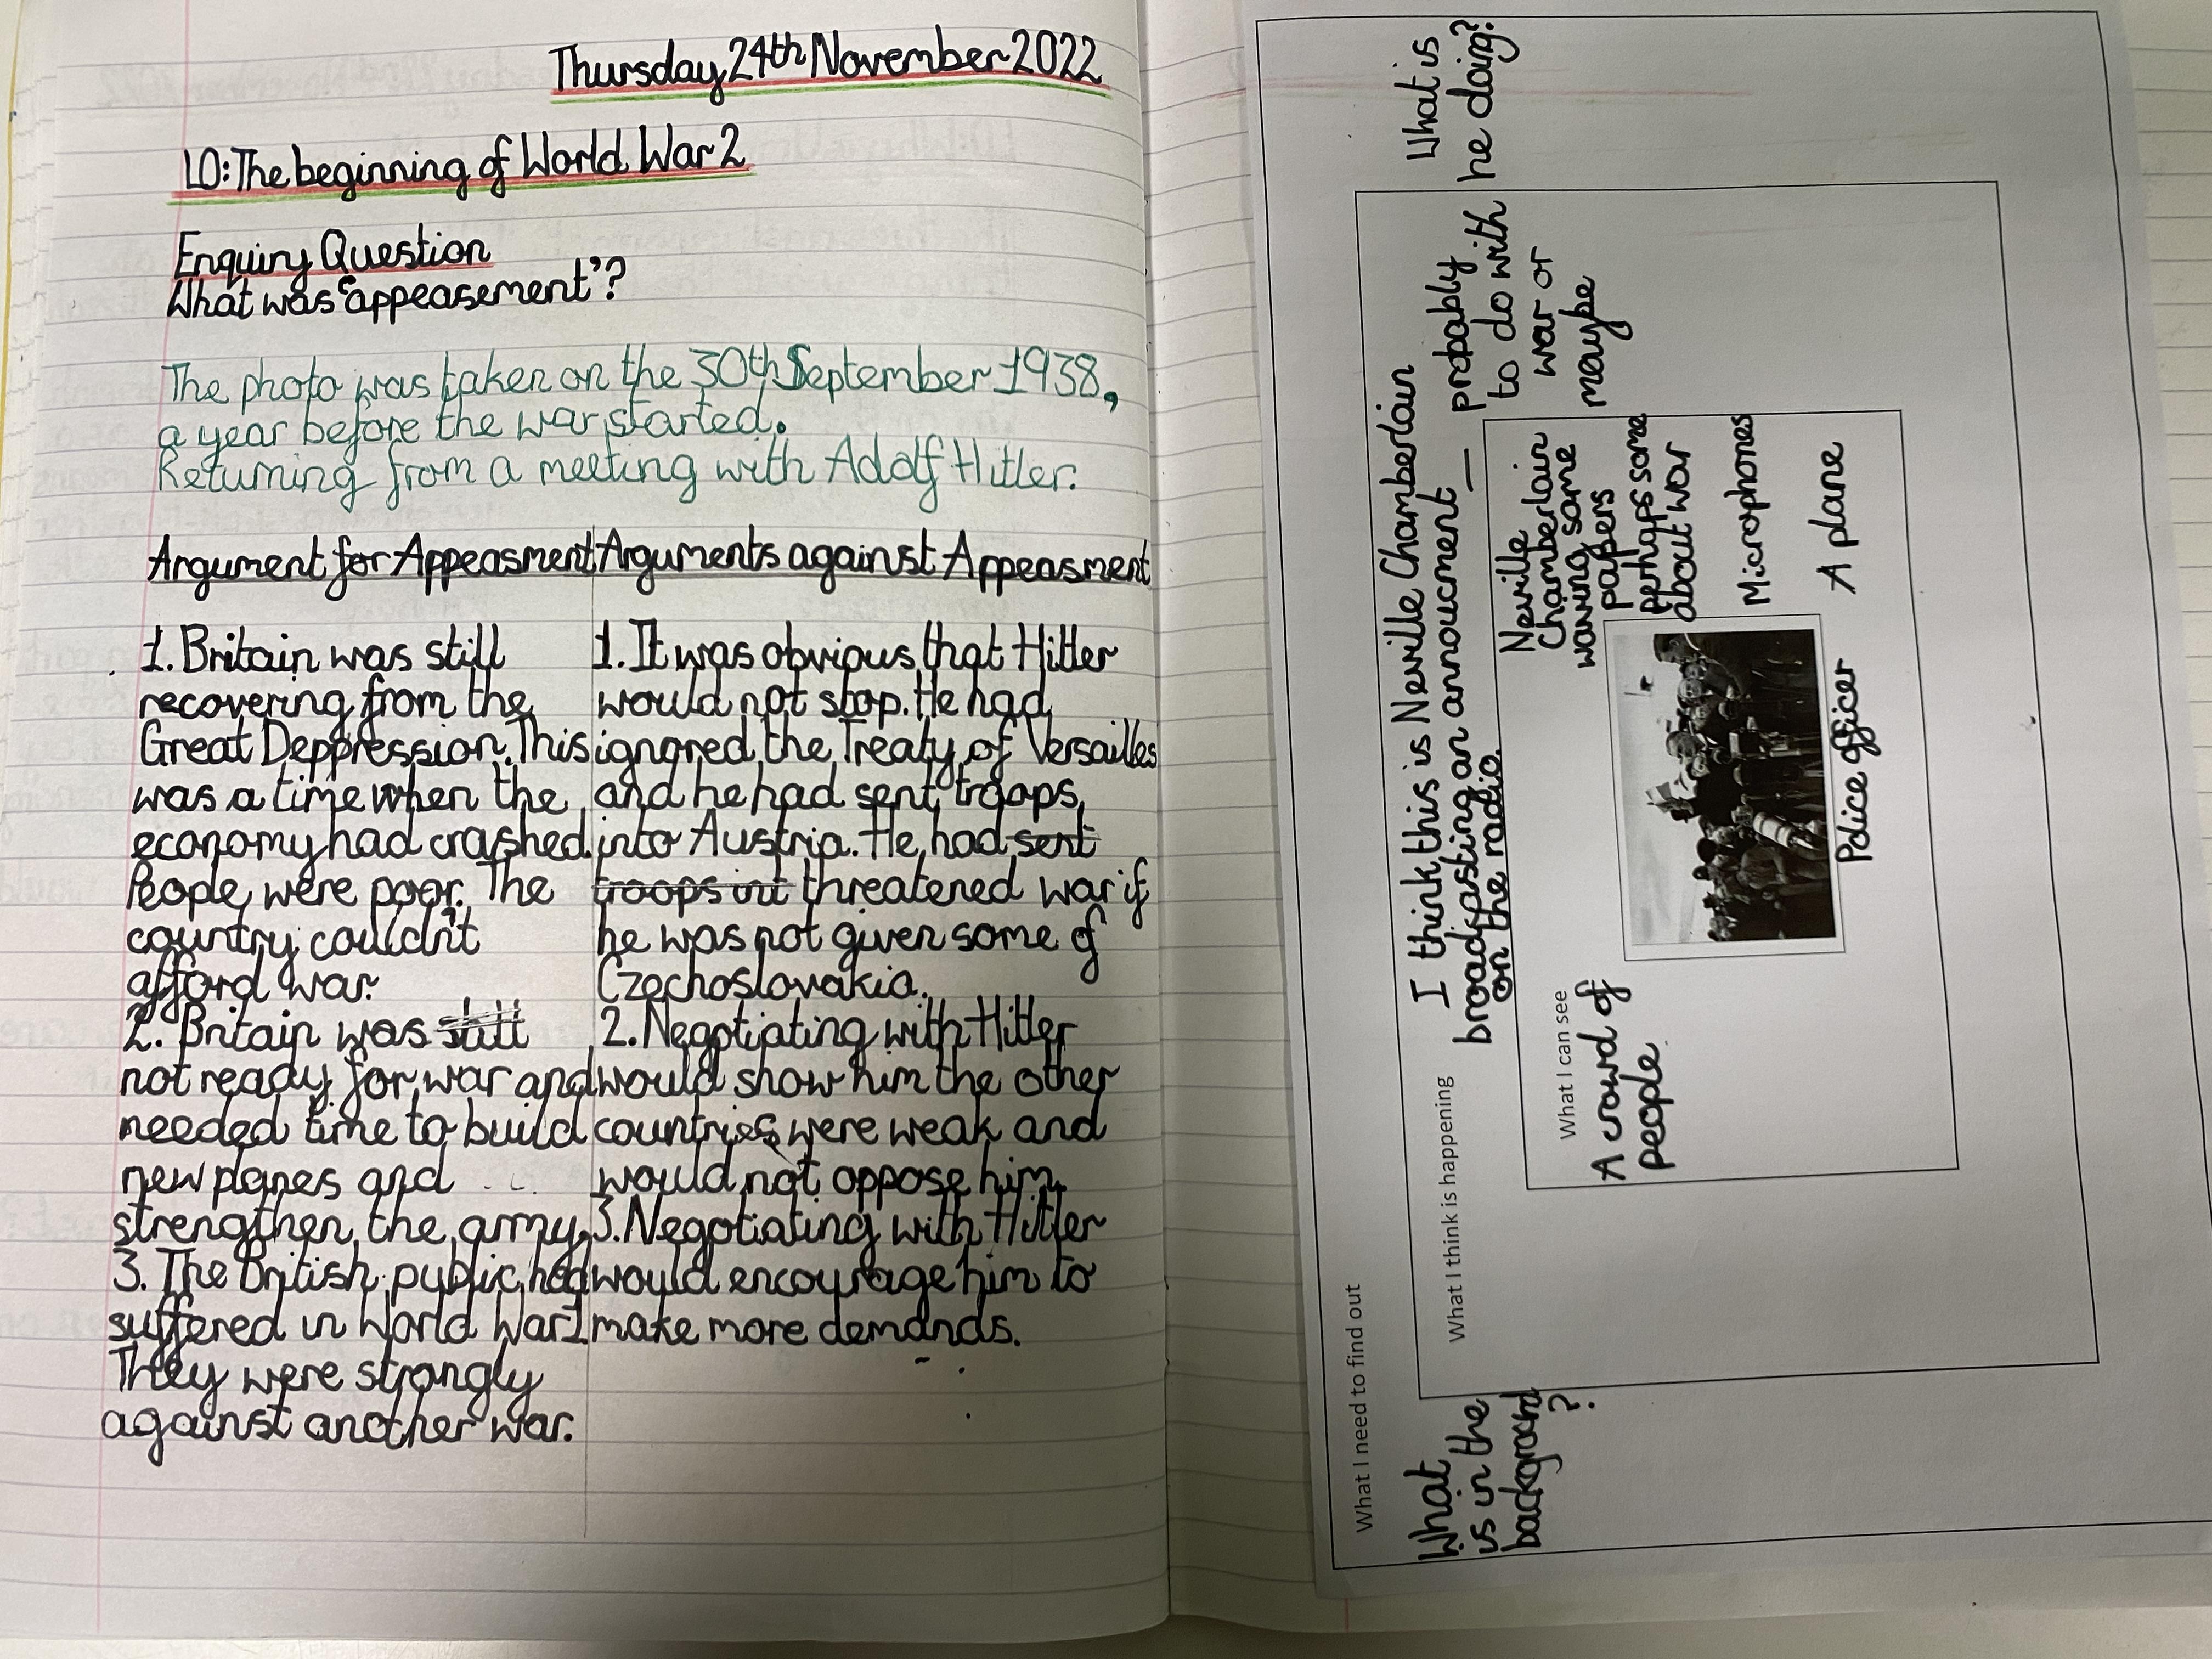 Thursday 24th November 2022
LO: The beginning of World War 2
Enquiry Question
What was "appeasement"?
The photo was taken on the 30th September 1938,
a year before the war started.
Returning from a meeting with Adolf Hitler.
Argument for Appeasment
1. Britain was still
recovering from the
Great Deppression. This
was a time when the
economy had crashed.
People were poor. The
country couldn't
afford war.
2. Britain was still
not ready for war and
needed time to build
new planes and
strengthen the army.
3. The British public had
suffered in World War 1
They were strongly
against another war.
Arguments against Appeasment
1. It was obvious that Hitler
would not stop. He had
ignored the Treaty of Versailles
and he had sent troops
into Austria. He had sent
troops int threatened war if
he was not given some of
Czechoslovakia.
2. Negotiating with Hitler
would show him the other
countries were weak and
would not oppose him.
3. Negotiating with Hitler
would encourage him to
make more demands.
What I need to find out
What
is in the
background
?
What is
he doing?
What I think is happening
I think this is Neville Chamberlain
broadcasting an annoucment — probably
on the radio.
to do with
war or
maybe
What I can see
A crowd of
people.
Neville
Chamberlain
waving some
papers
perhaps some
about war
Microphones
A plane
Police officer